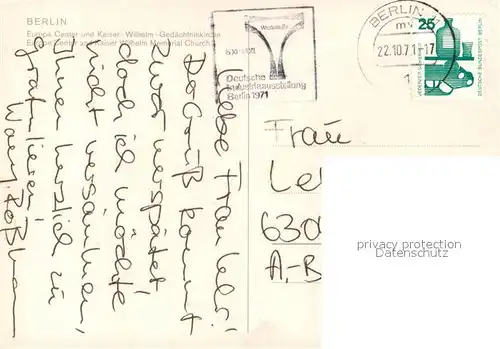 BERLIN
Europa Center und Kaiser-Wilhelm-Gedächtniskirche
Europe Center and Kaiser Wilhelm Memorial Church
Deutsche
Industrieausstellung
Berlin 1971
BERLIN
22.10.71-17
1
25
DEUTSCHE BUNDESPOST BERLIN
Liebe Frau
Gruß kommt
zwar verspätet
doch ich möchte
nicht versäumen
Ihnen herzlich zu
gratulieren!
Frau
Le
6300
A,-B
privacy protection
Datenschutz